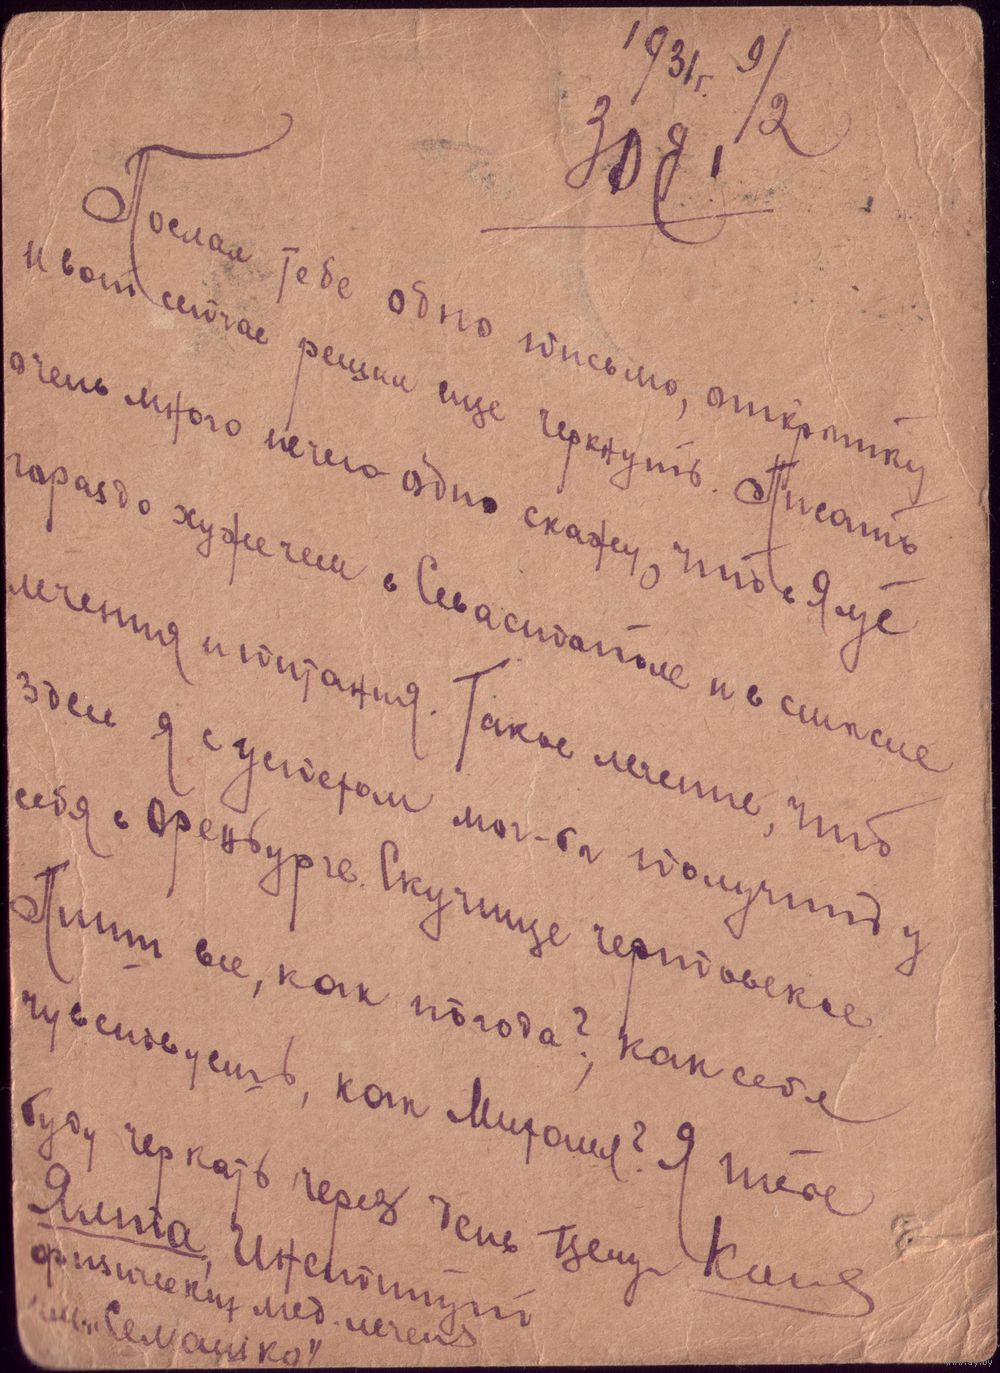 1931г. 9/2
Зоя,
Послал тебе одно письмо, открытку
и вот сейчас решил еще черкнуть. Писать
очень много нечего одно скажу, что в Ялте
гораздо хуже чем в Севастополе и в смысле
лечения и питания. Такое лечение, что
здесь я с успехом мог-бы получить у
себя в Оренбурге. Скучище чертовское
Пиши все, как погода?, как себя
чувствуешь, как? Я тебе
буду черкать через день Целую Коля
Ялта, Институт
физических мед. лечения
им. "Семашко"